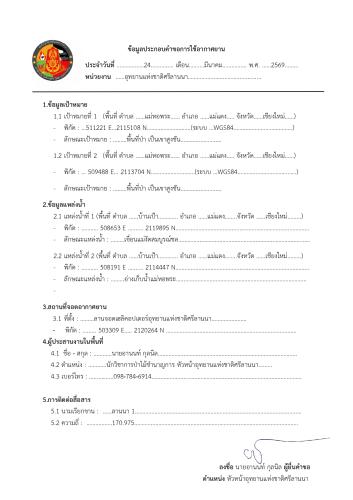 ข้อมูลประกอบคำขอการใช้อากาศยาน
ประจำวันที่ ................24............... เดือน.........มีนาคม.............. พ.ศ. ......2569.........
หน่วยงาน ......อุทยานแห่งชาติศรีลานนา..........................................
1.ข้อมูลเป้าหมาย
1.1 เป้าหมายที่ 1 (พื้นที่ ตำบล ......แม่หอพระ...... อำเภอ .....แม่แตง..... จังหวัด......เชียงใหม่......)
- พิกัด : ...511221 E...2115108 N.........................(ระบบ ...WGS84..................................)
- ลักษณะเป้าหมาย : .........พื้นที่ป่า เป็นเขาสูงชัน........................
1.2 เป้าหมายที่ 2 (พื้นที่ ตำบล ......แม่หอพระ...... อำเภอ .....แม่แตง..... จังหวัด......เชียงใหม่......)
- พิกัด : ... 509488 E... 2113704 N.........................(ระบบ ...WGS84..................................)
- ลักษณะเป้าหมาย : .........พื้นที่ป่า เป็นเขาสูงชัน........................
2.ข้อมูลแหล่งน้ำ
2.1 แหล่งน้ำที่ 1 (พื้นที่ ตำบล ......บ้านเป้า........... อำเภอ .....แม่แตง.......จังหวัด ......เชียงใหม่......)
- พิกัด : .......... 508653 E ......... 2119895 N..........................................................
- ลักษณะแหล่งน้ำ : ........เขื่อนแม่งัดสมบูรณ์ชล..........................................................
2.2 แหล่งน้ำที่ 2 (พื้นที่ ตำบล ......บ้านเป้า........... อำเภอ .....แม่แตง.......จังหวัด ......เชียงใหม่......)
- พิกัด : .......... 508191 E ......... 2114447 N..........................................................
- ลักษณะแหล่งน้ำ : ........อ่างเก็บน้ำแม่หอพระ..........................................................
-
3.สถานที่จอดอากาศยาน
3.1 ที่ตั้ง : ........ลานจอดเฮลิคอปเตอร์อุทยานแห่งชาติศรีลานนา....................
- พิกัด : ......... 503309 E..... 2120264 N..........................................................
4.ผู้ประสานงานในพื้นที่
4.1 ชื่อ - สกุล : ...........นายอานนท์ กุลนิล..........................................................
4.2 ตำแหน่ง : ...........นักวิชาการป่าไม้ชำนาญการ หัวหน้าอุทยานแห่งชาติศรีลานนา........
4.3 เบอร์โทร : ...............098-784-6914..........................................................
5.การติดต่อสื่อสาร
5.1 นามเรียกขาน : ......ลานนา 1..........................................................
5.2 ความถี่ : ...............170.975..........................................................
ลงชื่อ นายอานนท์ กุลนิล ผู้ยื่นคำขอ
ตำแหน่ง หัวหน้าอุทยานแห่งชาติศรีลานนา